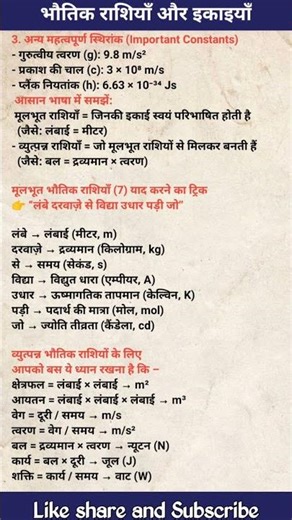 भौतिक राशियाँ और इकाइयाँ
3. अन्य महत्वपूर्ण स्थिरांक (Important Constants)
- गुरुत्वीय त्वरण (g): 9.8 m/s²
- प्रकाश की चाल (c): 3 × 10⁸ m/s
- प्लैंक नियतांक (h): 6.63 × 10⁻³⁴ Js
आसान भाषा में समझें:
मूलभूत राशियाँ = जिनकी इकाई स्वयं परिभाषित होती है
(जैसे: लंबाई = मीटर)
- व्युत्पन्न राशियाँ = जो मूलभूत राशियों से मिलकर बनती हैं
(जैसे: बल = द्रव्यमान × त्वरण)
मूलभूत भौतिक राशियाँ (7) याद करने का ट्रिक
👉 "लंबे दरवाज़े से विद्या उधार पड़ी जो"
लंबे → लंबाई (मीटर, m)
दरवाज़े → द्रव्यमान (किलोग्राम, kg)
से → समय (सेकंड, s)
विद्या → विद्युत धारा (एम्पीयर, A)
उधार → ऊष्मागतिक तापमान (केल्विन, K)
पड़ी → पदार्थ की मात्रा (मोल, mol)
जो → ज्योति तीव्रता (कैंडेला, cd)
व्युत्पन्न भौतिक राशियाँ के लिए
आपको बस ये ध्यान रखना है कि –
क्षेत्रफल = लंबाई × लंबाई → m²
आयतन = लंबाई × लंबाई × लंबाई → m³
वेग = दूरी / समय → m/s
त्वरण = वेग / समय → m/s²
बल = द्रव्यमान × त्वरण → न्यूटन (N)
कार्य = बल × दूरी → जूल (J)
शक्ति = कार्य / समय → वाट (W)
Like share and Subscribe